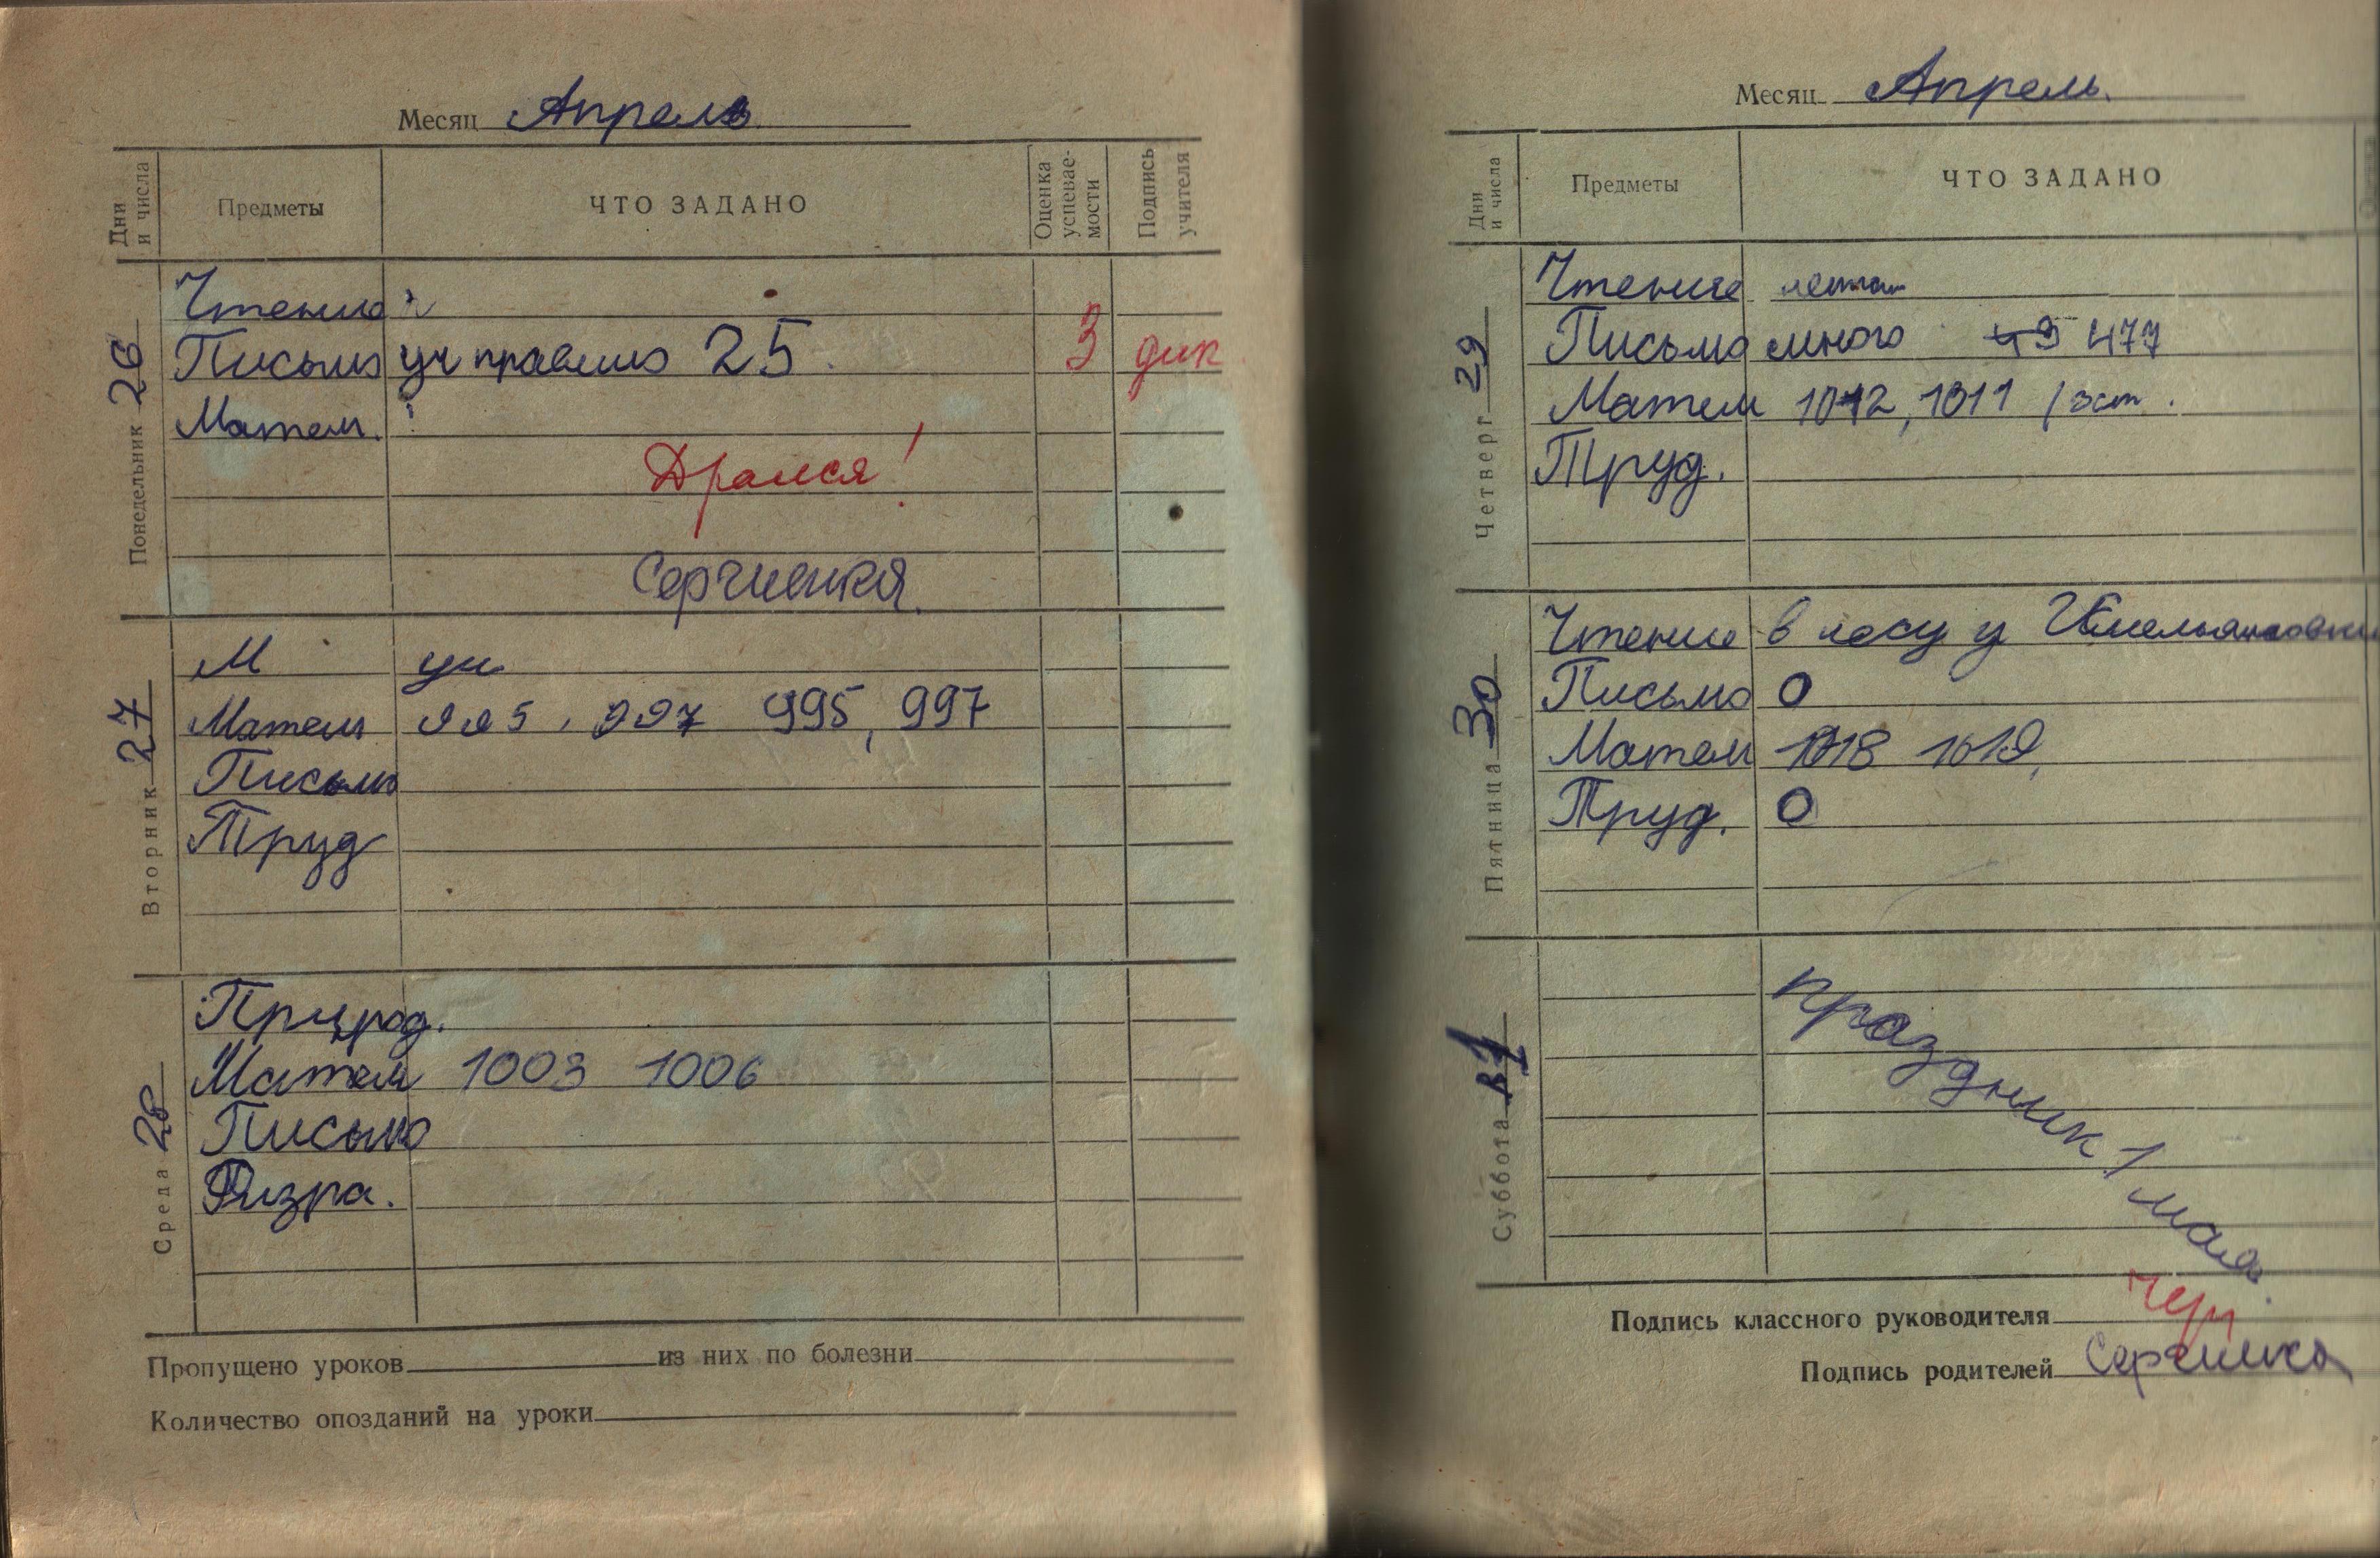 Месяц Апрель
Дни и числа Предметы ЧТО ЗАДАНО Оценка успеваемости Подпись учителя
Понедельник 26
Чтение
Письмо уч правило 25. 3 дик
Матем.
Дрался!
Вторник 27
М
Матем 995, 997 995, 997
Письмо
Труд
Среда 28
Природ.
Матем 1003 1006
Письмо
Физра.
Пропущено уроков из них по болезни
Количество опозданий на уроки
Месяц Апрель.
Дни и числа Предметы ЧТО ЗАДАНО
Четверг 29
Чтение
Письмо много 477
Матем 1012, 1011
Труд.
Пятница 30
Чтение в лесу у
Письмо 0
Матем 1018 1019,
Труд. 0
Суббота 1
праздник 1 мая.
Подпись классного руководителя
Подпись родителей